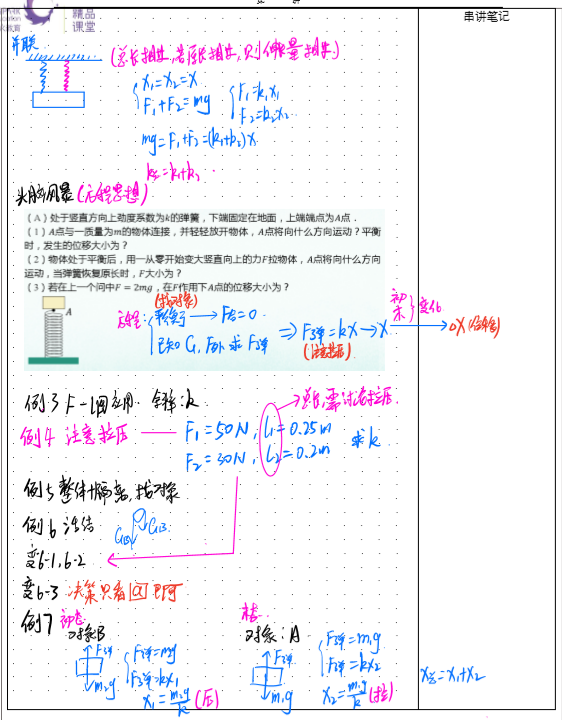 精品
课堂
串讲笔记
并联
(总长相同,若原长相同,则伸缩量相同)
x₁=x₂=x
F₁+F₂=mg
F₁=k₁x₁
F₂=k₂x₂
mg=F₁+F₂=(k₁+k₂)x
k总=k₁+k₂
头脑风暴(方程思想)
(A)处于竖直方向上劲度系数为k的弹簧,下端固定在地面,上端端点为A点.
(1)A点与一质量为m的物体连接,并轻轻放开物体,A点将向什么方向运动?平衡
时,发生的位移大小为?
(2)物体处于平衡后,用一从零开始变大竖直向上的力F拉物体,A点将向什么方向
运动,当弹簧恢复原长时,F大小为?
(3)若在上一个问中F=2mg,在F作用下A点的位移大小为?
A
(找对象)
方程:
平衡 → F合=0
已知G,F外求F弹
⇒ F弹=kx→x
(注意拉压)
初
末
变化
Δx
例3 F-l图应用
例4 注意拉压
F₁=50N, l₁=0.25m
F₂=30N, l₂=0.2m
求k
需讨论拉压
例5 整体+隔离,找对象
例6
变6-1,6-2
变6-3
例7
初态
对象B
F弹
m₂g
F弹=mg
F弹=kx₁
x₁=m₂g/k (压)
末态
对象:A
F弹
m₁g
F弹=m₁g
F弹=kx₂
x₂=m₁g/k (拉)
x总=x₁+x₂